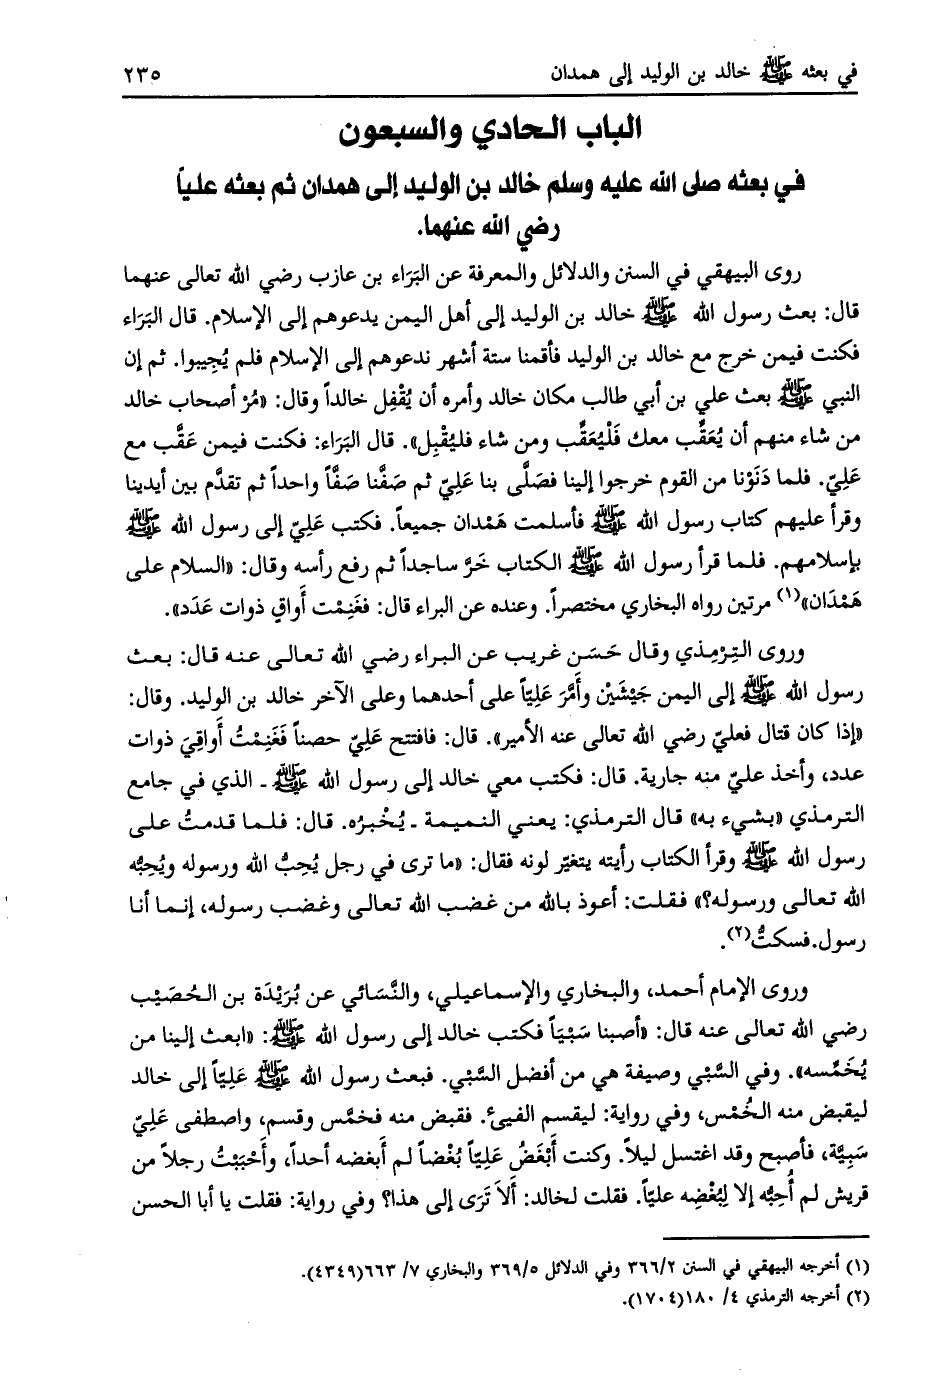 في بعثه ﷺ خالد بن الوليد إلى همدان ٢٣٥
الباب الحادي والسبعون
في بعثه صلى الله عليه وسلم خالد بن الوليد إلى همدان ثم بعثه علياً
رضي الله عنهما.
روى البيهقي في السنن والدلائل والمعرفة عن البَرَاء بن عازب رضي الله تعالى عنهما
قال: بعث رسول الله ﷺ خالد بن الوليد إلى أهل اليمن يدعوهم إلى الإسلام. قال البَرَاء
فكنت فيمن خرج مع خالد بن الوليد فأقمنا ستة أشهر ندعوهم إلى الإسلام فلم يُجِيبوا. ثم إن
النبي ﷺ بعث علي بن أبي طالب مكان خالد وأمره أن يُقْفِل خالداً وقال: «مُرْ أصحاب خالد
من شاء منهم أن يُعَقِّب معك فَلْيُعَقِّب ومن شاء فليُقْبِل». قال البَرَاء: فكنت فيمن عَقَّب مع
عَلِيّ. فلما دَنَوْنا من القوم خرجوا إلينا فصَلَّى بنا عَلِيّ ثم صَفَّنا صَفَّاً واحداً ثم تقدَّم بين أيدينا
وقرأ عليهم كتاب رسول الله ﷺ فأسلمت هَمْدان جميعاً. فكتب عَلِيّ إلى رسول الله ﷺ
بإسلامهم. فلما قرأ رسول الله ﷺ الكتاب خَرَّ ساجداً ثم رفع رأسه وقال: «السلام على
هَمْدَان»(١) مرتين رواه البخاري مختصراً. وعنده عن البراء قال: فغَنِمْت أَواقٍ ذوات عَدَد».
وروى التِرْمِذي وقال حَسَن غريب عن البراء رضي الله تعالى عنه قال: بعث
رسول الله ﷺ إلى اليمن جَيْشَيْن وأَمَّرَ عَلِيّاً على أحدهما وعلى الآخر خالد بن الوليد. وقال:
«إذا كان قتال فعليّ رضي الله تعالى عنه الأمير». قال: فافتتح عَلِيّ حصناً فَغَنِمْتُ أَواقِيَ ذوات
عدد، وأخذ عليّ منه جارية. قال: فكتب معي خالد إلى رسول الله ﷺ ـ الذي في جامع
الترمذي «بشيء به» قال الترمذي: يعني النميمة ـ يُخْبرُه. قال: فلما قدمتُ على
رسول الله ﷺ وقرأ الكتاب رأيته يتغيّر لونه فقال: «ما ترى في رجل يُحِبُّ الله ورسوله ويُحِبُّه
الله تعالى ورسوله؟» فقلت: أعوذ بالله من غضب الله تعالى وغضب رسوله، إنما أنا
رسول.فسكتُّ(٢).
وروى الإمام أحمد، والبخاري والإسماعيلي، والنَّسَائي عن بُرَيْدَة بن الحُصَيْب
رضي الله تعالى عنه قال: «أصبنا سَبْيَاً فكتب خالد إلى رسول الله ﷺ: «ابعث إلينا من
يُخَمِّسه». وفي السَّبْي وصيفة هي من أفضل السَّبْي. فبعث رسول الله ﷺ عَلِيّاً إلى خالد
ليقبض منه الخُمْس، وفي رواية: ليقسم الفيئ. فقبض منه فخمَّس وقسم، واصطفى عَلِيّ
سَبِيَّة، فأصبح وقد اغتسل ليلاً. وكنت أَبْغَضُ عَلِيّاً بُغْضاً لم أبغضه أحداً، وأَحْبَبْتُ رجلاً من
قريش لم أُحِبُّه إلا لِبُغْضِه عليّاً. فقلت لخالد: أَلاَ تَرَى إلى هذا؟ وفي رواية: فقلت يا أبا الحسن
(١) أخرجه البيهقي في السنن ٣٦٦/٢ وفي الدلائل ٣٦٩/٥ والبخاري ٧/ ٦٦٣(٤٣٤٩).
(٢) أخرجه الترمذي ٤/ ١٨٠(١٧٠٤).